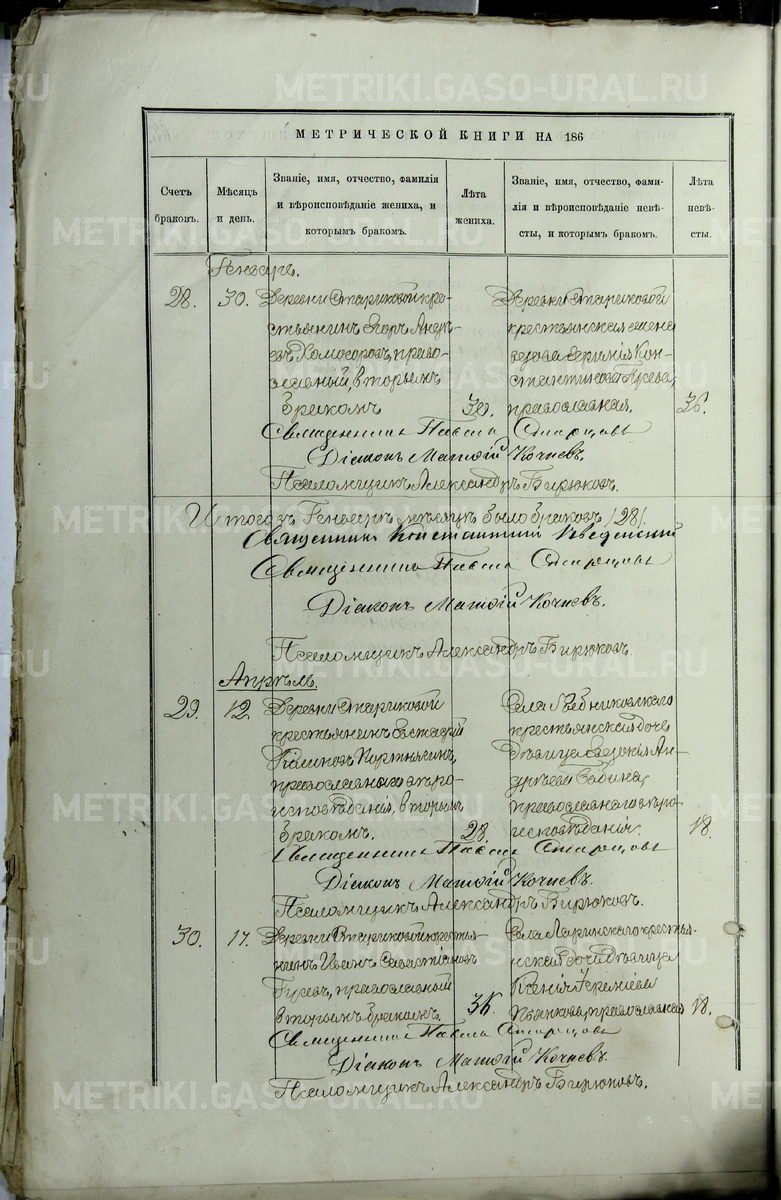 METRIKI.GASO-URAL.RU
МЕТРИЧЕСКОЙ КНИГИ НА 186
Счетъ браковъ.
Мѣсяцъ и день.
Званіе, имя, отчество, фамилія и вѣроисповѣданіе жениха, и которымъ бракомъ.
Лѣта жениха.
Званіе, имя, отчество, фами-лія и вѣроисповѣданіе невѣ-сты, и которымъ бракомъ.
Лѣта невѣ-сты.
Генварь.
28.
30.
Деревни Стариковой кре-
стьянинъ Егоръ
православный, вторымъ
бракомъ
30.
Деревни Стариковой
крестьянская
вдова Кон-
стантинова
православная.
36.
Священникъ Павелъ Старцовъ
Діаконъ Матѳій Кочневъ.
Псаломщикъ Александръ Бирюковъ.
Итого въ Генварѣ мѣсяцѣ было браковъ (28).
Священникъ Константинъ Введенскій
Священникъ Павелъ Старцовъ
Діаконъ Матѳій Кочневъ.
Псаломщикъ Александръ Бирюковъ.
Апрѣль.
29.
12.
Деревни Стариковой
крестьянинъ Евстафій
православнаго вѣро-
исповѣданія, вторымъ
бракомъ.
28.
Села
крестьянская дочь
дѣвица Ан-
дрѣева Бабина,
православнаго вѣро
исповѣданія.
18.
Священникъ Павелъ Старцовъ
Діаконъ Матѳій Кочневъ.
Псаломщикъ Александръ Бирюковъ.
30.
17.
Деревни Стариковой крестья-
нинъ Иванъ Савастіановъ
Гусевъ, православный
вторымъ бракомъ.
36.
Села Ларинскаго крестья-
нская дочь дѣвица
Ксенія
православная
18.
Священникъ Павелъ Старцовъ
Діаконъ Матѳій Кочневъ.
Псаломщикъ Александръ Бирюковъ.